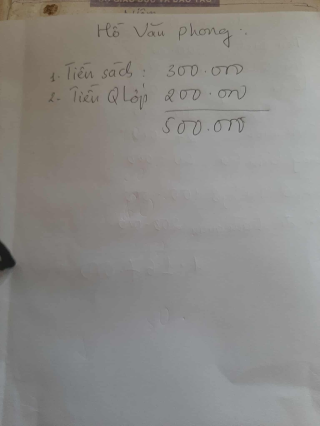 Hồ Văn Phong:
1- Tiền sách: 300.000
2- Tiền Q Lớp 200.000
500.000